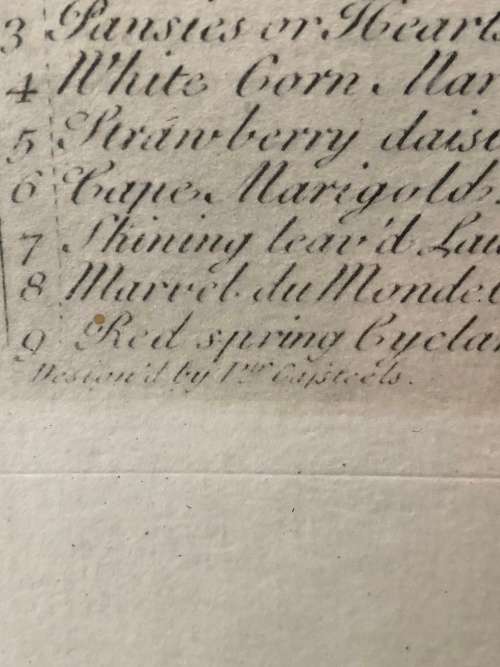 3 Pansies or Hearts
4 White Corn Mar
5 Strawberry daisi
6 Cape Marigold
7 Shining leav'd Lau
8 Marvel du Monde
9 Red spring Cyclam
Design'd by Pr. Casteels.